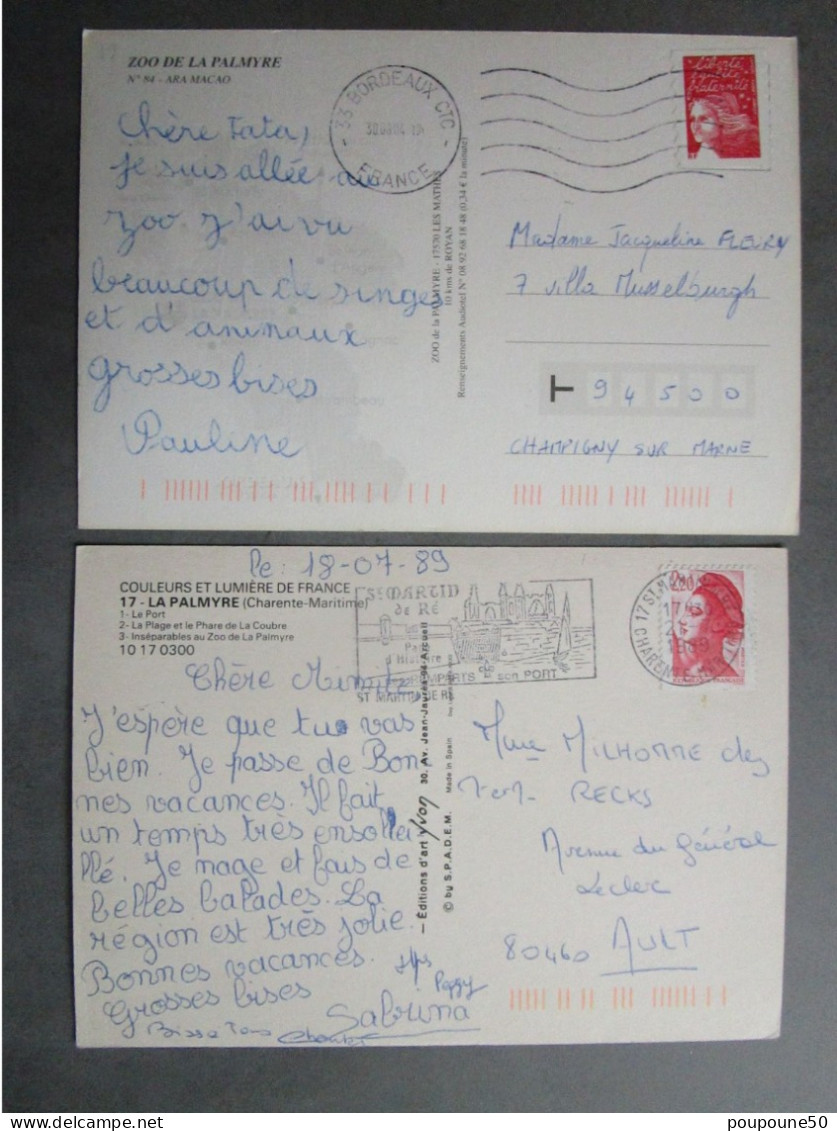 ZOO DE LA PALMYRE
N° 84 - ARA MACAO
33 BORDEAUX CTC
FRANCE
Liberté
égalité
fraternité
Chère Tata,
je suis allée au
zoo j'ai vu
beaucoup de singes
et d'animaux
grosses bises
Pauline
ZOO de la PALMYRE - 17570 LES MATHES
10 kms de ROYAN
Renseignements Audiotel N° 08 92 68 18 48 (0,34 € la minute)
Madame Jacqueline FLEURY
7 villa Musselburgh
T 94500
CHAMPIGNY SUR MARNE
Le: 18-07-89
COULEURS ET LUMIÈRE DE FRANCE
17 - LA PALMYRE (Charente-Maritime)
1- Le Port
2- La Plage et le Phare de La Coubre
3- Inséparables au Zoo de La Palmyre
10 17 0300
St MARTIN
de RÉ
d'Histoire
REMPARTS son PORT
ST MARTIN DE RE
2,20
1989
Chère
J'espère que tu vas
bien. Je passe de Bon-
nes vacances. Il fait
un temps très ensolei
llé. Je nage et fais de
belles balades. La
région est très jolie.
Bonnes vacances.
Grosses bises
Sabrina
Peggy
— Éditions d'art Yvon 30, Av. Jean-Jaurès-94-Arcueil
© by S.P.A.D.E.M. Made in Spain
Mme MILHOMME des
RECKS
Avenue du Général
Leclerc
80460 AULT
poupoune50